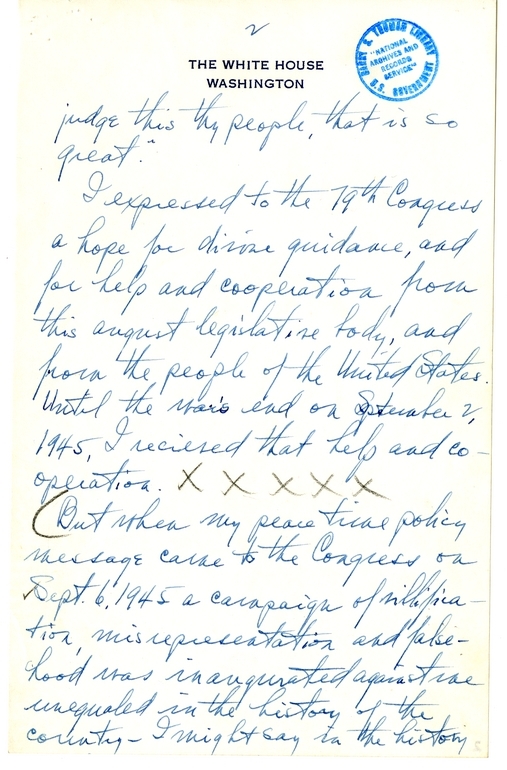 2
THE WHITE HOUSE
WASHINGTON
HARRY S. TRUMAN LIBRARY
"NATIONAL
ARCHIVES AND
RECORDS
SERVICE"
U.S. GOVERNMENT
judge this thy people, that is so
great."
I expressed to the 79th Congress
a hope for divine guidance, and
for help and cooperation from
this august legislative body, and
from the people of the United States.
Until the war's end on September 2,
1945, I recieved that help and co-
operation. X X X X X
(But when my peace time policy
message came to the Congress on
Sept. 6, 1945 a campaign of villifica-
tion, misrepresentation and false-
hood was inaugurated against me
unequaled in the history of the
country - I might say in the history